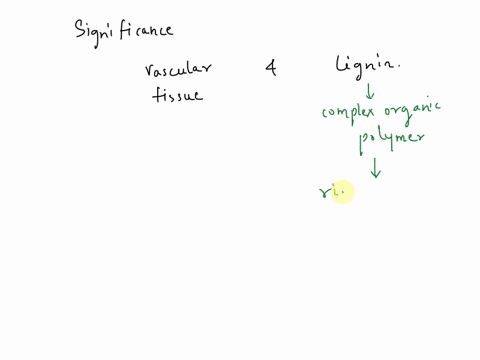 Significance
vascular & Lignin.
tissue
complex organic
polymer
ri.